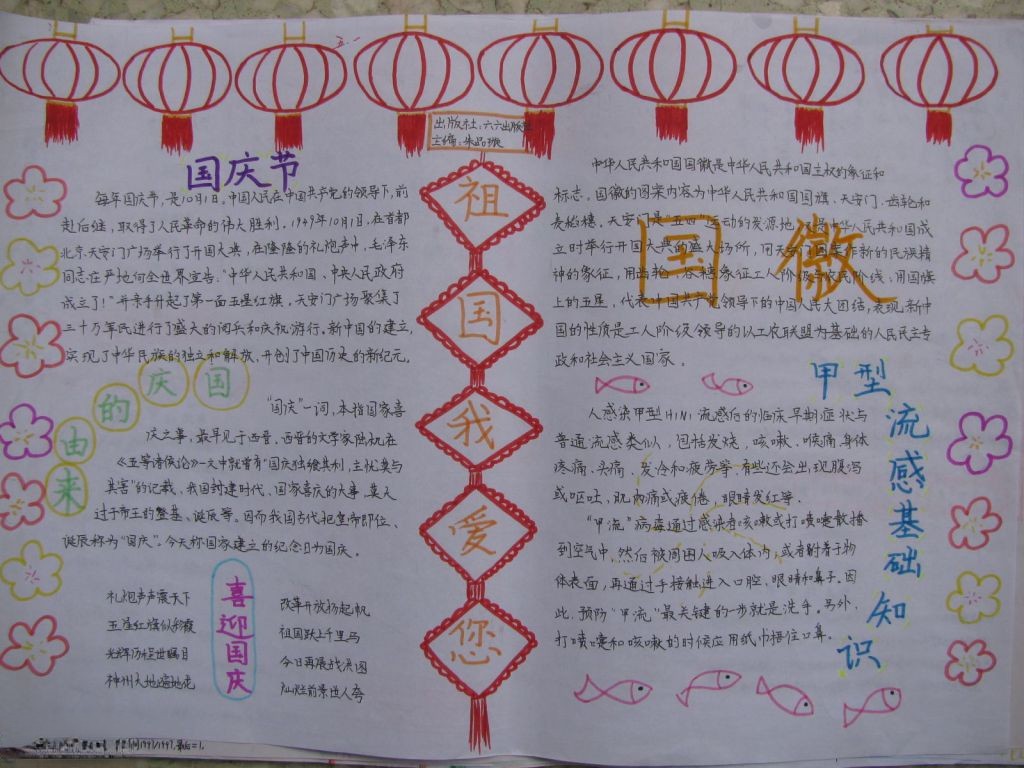 五.一
出版社:六六出版社
主编:朱品璇
国庆节
每年国庆节,是10月1日。中国人民在中国共产党的领导下,前
赴后继,取得了人民革命的伟大胜利。1949年10月1日,在首都
北京天安门广场举行了开国大典,在隆隆的礼炮声中,毛泽东
同志在庄严地向全世界宣告:“中华人民共和国,中央人民政府
成立了!”并亲手升起了第一面五星红旗。天安门广场聚集了
三十万军民进行了盛大的阅兵和庆祝游行。新中国的建立,
实现了中华民族的独立和解放,开创了中国历史的新纪元。
国庆的由来
“国庆”一词,本指国家喜
庆之事,最早见于西晋。西晋的文学家陆机在
《五等诸侯论》一文中就曾有“国庆独飨其利,主忧莫与
其害”的记载、我国封建时代、国家喜庆的大事,莫大
过于帝王的登基、诞辰等。因而我国古代把皇帝即位、
诞辰称为“国庆”。今天称国家建立的纪念日为国庆。
喜迎国庆
礼炮声声震天下
五星红旗似彩霞
光辉历程世瞩目
神州大地遍地花
改革开放扬起帆
祖国跃上千里马
今日再展战洪图
灿烂前景世人夸
祖
国
我
爱
您
国徽
中华人民共和国国徽是中华人民共和国主权的象征和
标志。国徽的图案内容为中华人民共和国国旗、天安门、齿轮和
麦稻穗,天安门是“五四”运动的发源地,又是中华人民共和国成
立时举行开国大典的盛大场所,用天安门图案作新的民族精
神的象征,用齿轮、谷穗象征工人阶级与农民阶级,用国旗
上的五星,代表中国共产党领导下的中国人民大团结,表现新中
国的性质是工人阶级领导的以工农联盟为基础的人民民主专
政和社会主义国家。
甲型流感基础知识
人感染甲型H1N1流感后的临床早期症状与
普通流感类似,包括发烧、咳嗽、喉痛、身体
疼痛、头痛、发冷和疲劳等,有些还会出现腹泻
或呕吐、肌肉痛或疲倦、眼睛发红等.
“甲流”病毒通过感染者咳嗽或打喷嚏散播
到空气中,然后被周围人吸入体内,或者附着于物
体表面,再通过手接触进入口腔、眼睛和鼻子。因
此,预防“甲流”最关键的一步就是洗手。另外,
打喷嚏和咳嗽的时候应用纸巾捂住口鼻。